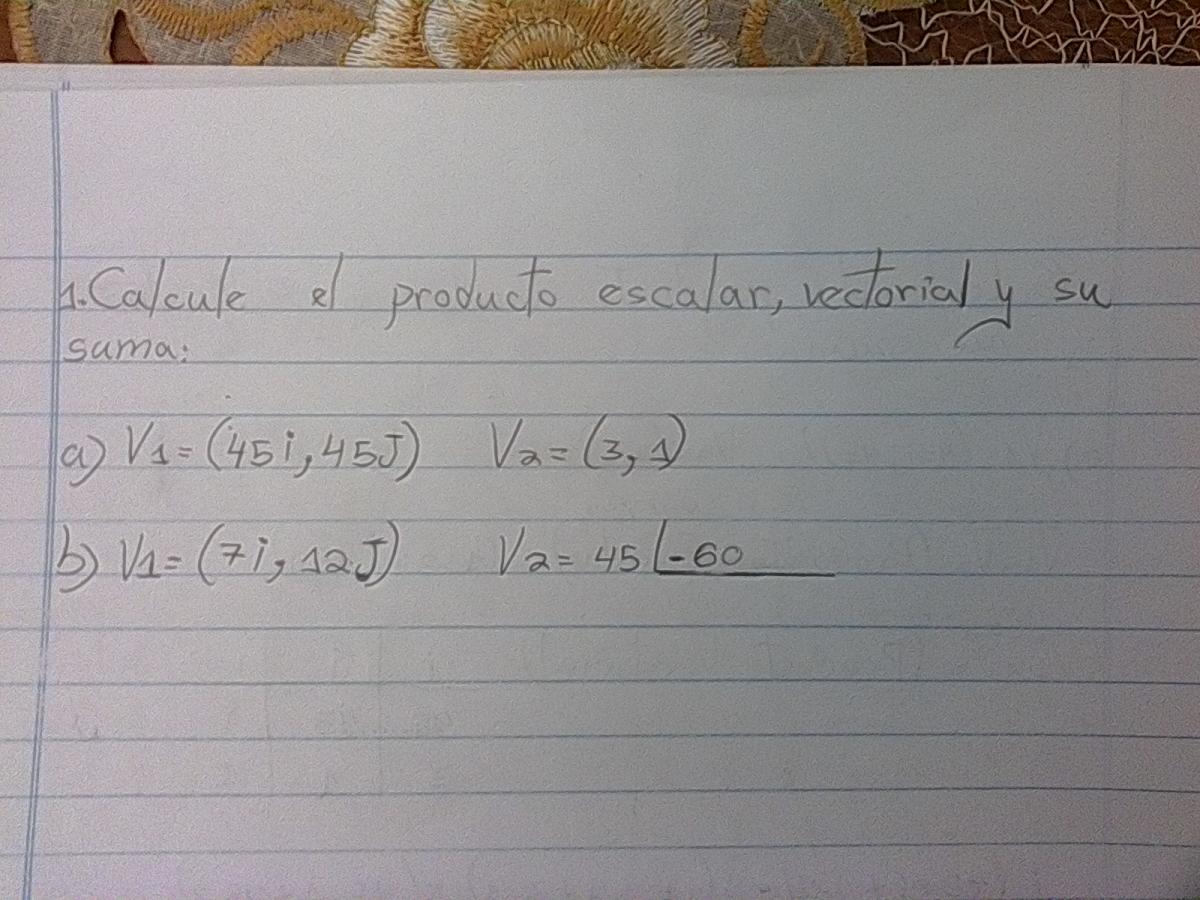 1. Calcule el producto escalar, vectorial y su
suma:
a) V1 = (45i, 45J) V2 = (3, 1)
b) V1 = (7i, 12J) V2 = 45 ∠-60